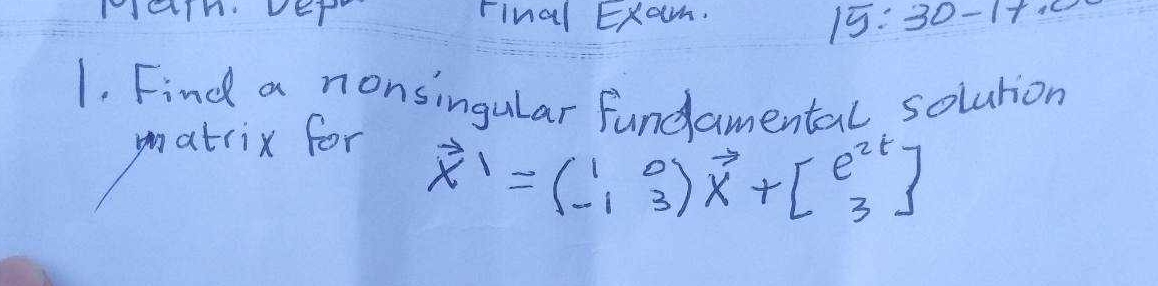 Math. Dep Final Exam. 15:30-17.
1. Find a nonsingular fundamental solution
matrix for x⃗' = (1 0 -1 3) x⃗ + [e^{2t} 3]